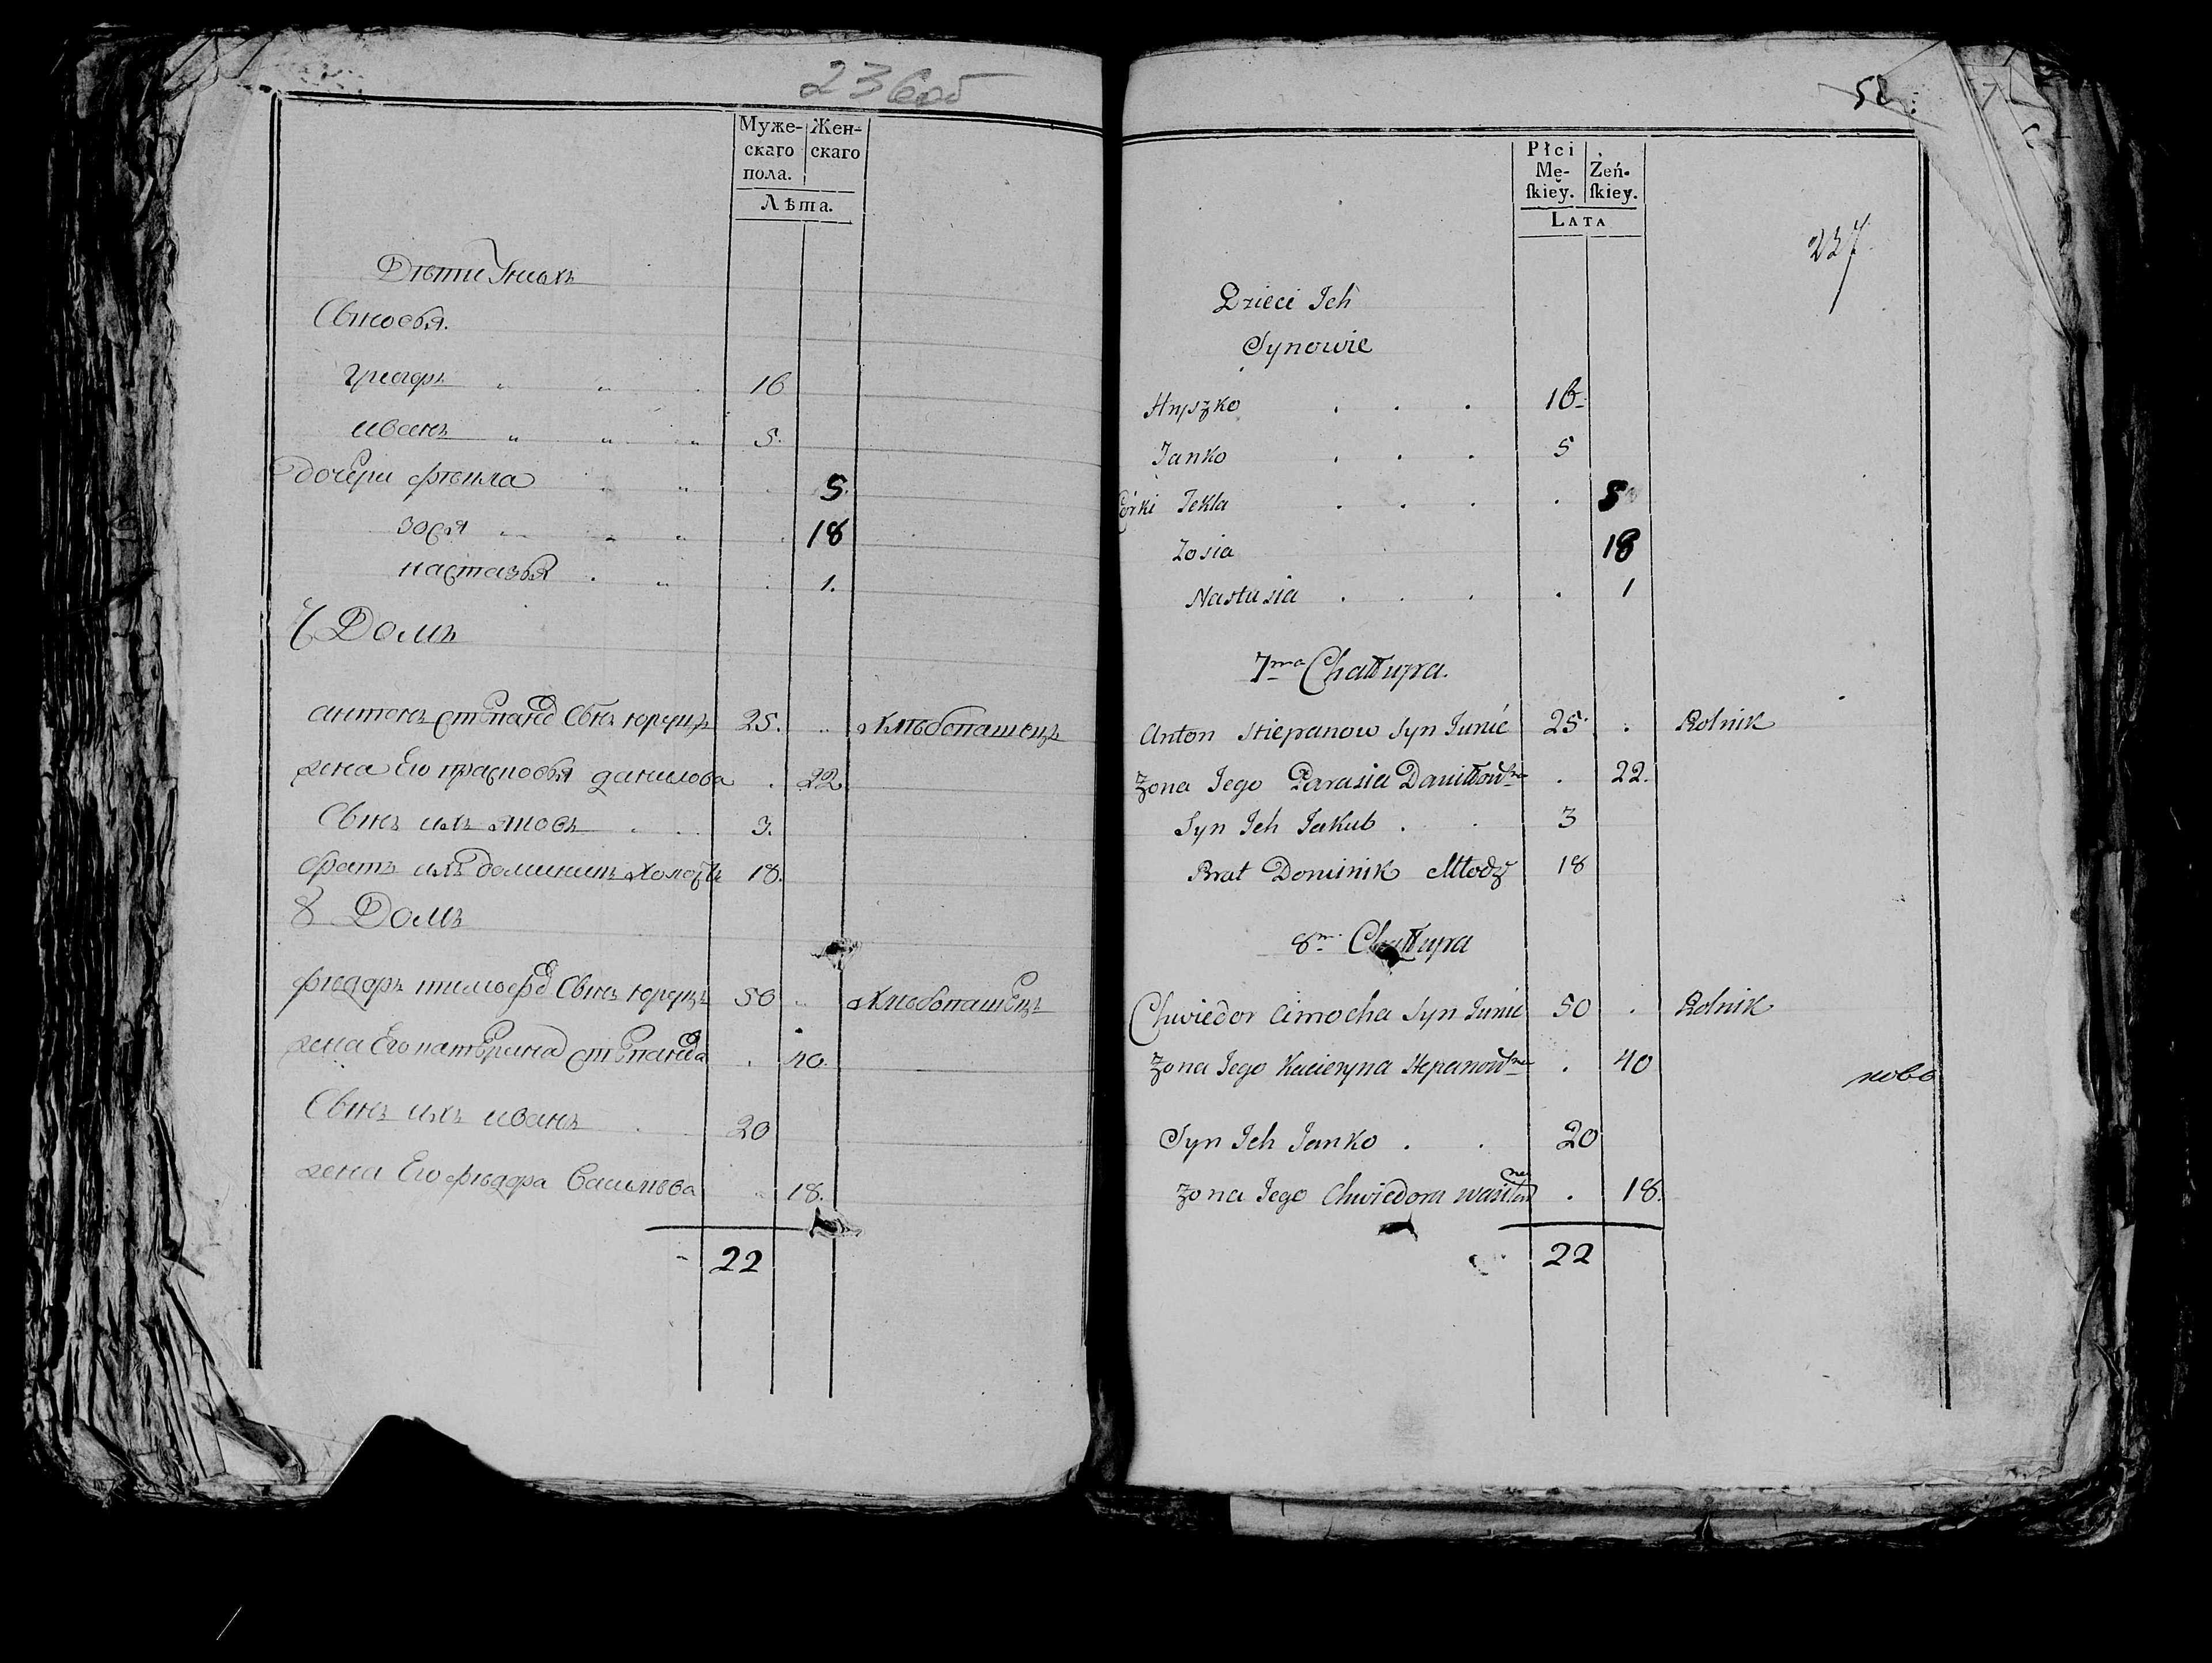 236 об
Муже- Жен-
скаго скаго
пола.
Лѣта.
Дѣти Унихъ
Сыновья.
Григоръ 16
иванъ 5.
дочери фѣкла 5.
зося 18
настазья 1.
7 Домъ
антонъ степановъ Сынъ 25. Хлѣбопашецъ
жена Его прасковья данилова 22
Сынъ ихъ яковъ 3.
братъ ихъ доминикъ 18.
8 Домъ
фѣдоръ тимофѣ Сынъ 50 Хлѣбопашецъ
жена Его катерина степанова 40.
Сынъ ихъ иванъ 20
жена Его фѣдора Василѣва 18.
22
52
Płci
Mę- Żeń-
ſkiey. ſkiey.
LATA
237
Dzieci Ich
Synowie
Hryszko 16
Janko 5
Córki Tekla 5
Zosia 18
Nastusia 1
7ma Chałłupa.
Anton Stiepanow Syn Junić 25 Rolnik
Żona Jego Parasia Daniłłowna 22.
Syn Ich Jakub 3
Brat Dominik Młodz 18
8ma Chałłupa
Chwiedor Cimocha Syn Junić 50 Rolnik
Żona Jego Kacieryna Stepanowna 40
ново
Syn Ich Janko 20
Żona Jego Chwiedora 18.
22